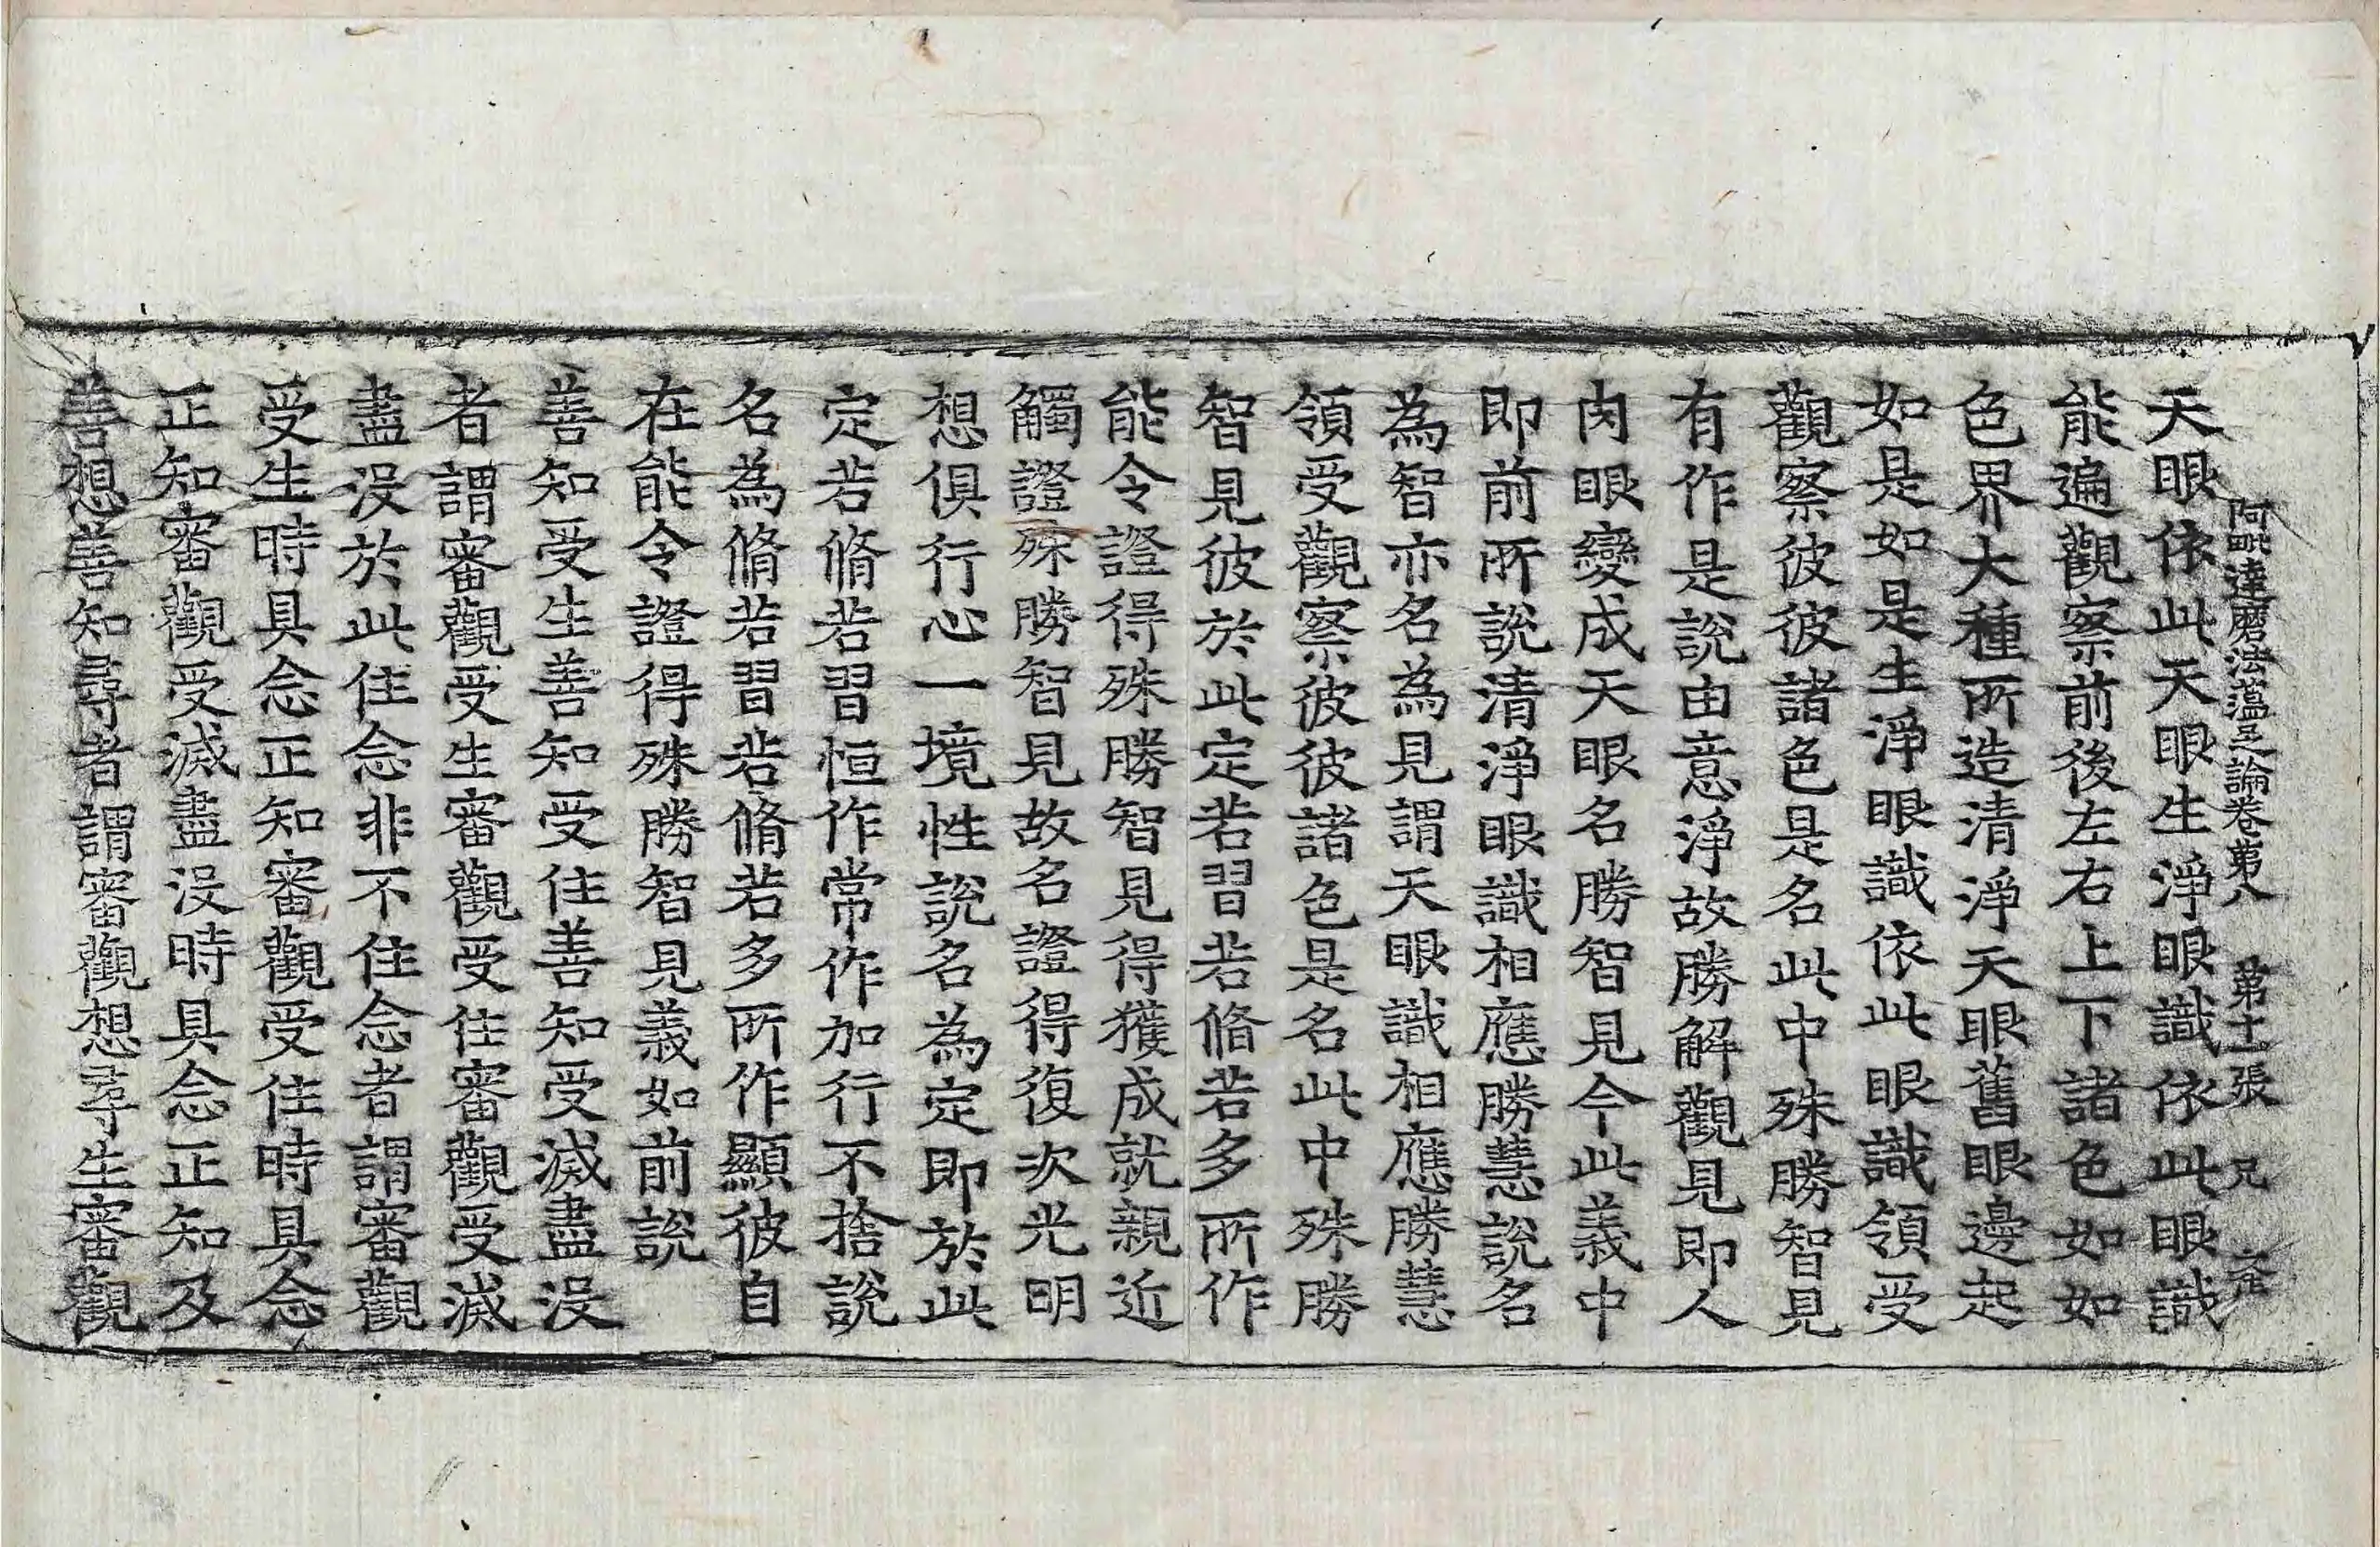 阿毗達磨法蘊足論卷第八　第十一張　兄
天眼依此天眼生淨眼識依此眼識
能遍觀察前後左右上下諸色如如
色界大種所造清淨天眼舊眼邊起
如是如是生淨眼識依此眼識領受
觀察彼彼諸色是名此中殊勝智見
有作是說由意淨故勝解觀見即人
肉眼變成天眼名勝智見今此義中
即前所說清淨眼識相應勝慧說名
為智亦名為見謂天眼識相應勝慧
領受觀察彼彼諸色是名此中殊勝
智見彼於此定若習若脩若多所作
能令證得殊勝智見得獲成就親近
觸證殊勝智見故名證得復次光明
想俱行心一境性說名為定即於此
定若脩若習恒作常作加行不捨說
名為脩若習若脩若多所作顯彼自
在能令證得殊勝智見義如前說
善知受生善知受住善知受滅盡沒
者謂審觀受生審觀受住審觀受滅
盡沒於此住念非不住念者謂審觀
受生時具念正知審觀受住時具念
正知審觀受滅盡沒時具念正知及
善想善知尋者謂審觀想尋生審觀